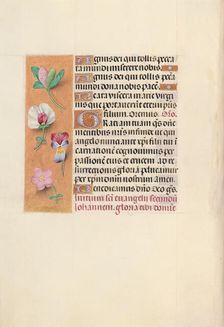 Agnus dei qui tollis pecca
ta mundi miserere nobis.
Agnus dei qui tollis pecca
ta mundi dona nobis pacē.
Beata viscera marie virgi
nis que portaverūt eterni pris
filium. Oremus. oro.
Gratiam tuam qs dne
mentibus nr̄is infunde ut qui
angelo nunciante xpi filii tui in
carnationē cognovimus per
passionē eius et crucem ad re
surrectionis gloriam perducamur
per xpm dominum nostrum amen.
Benedicamus dn̄o. Deo gr̄as.
Initium sci evangelii secundū
Johannem. gloria tibi domine